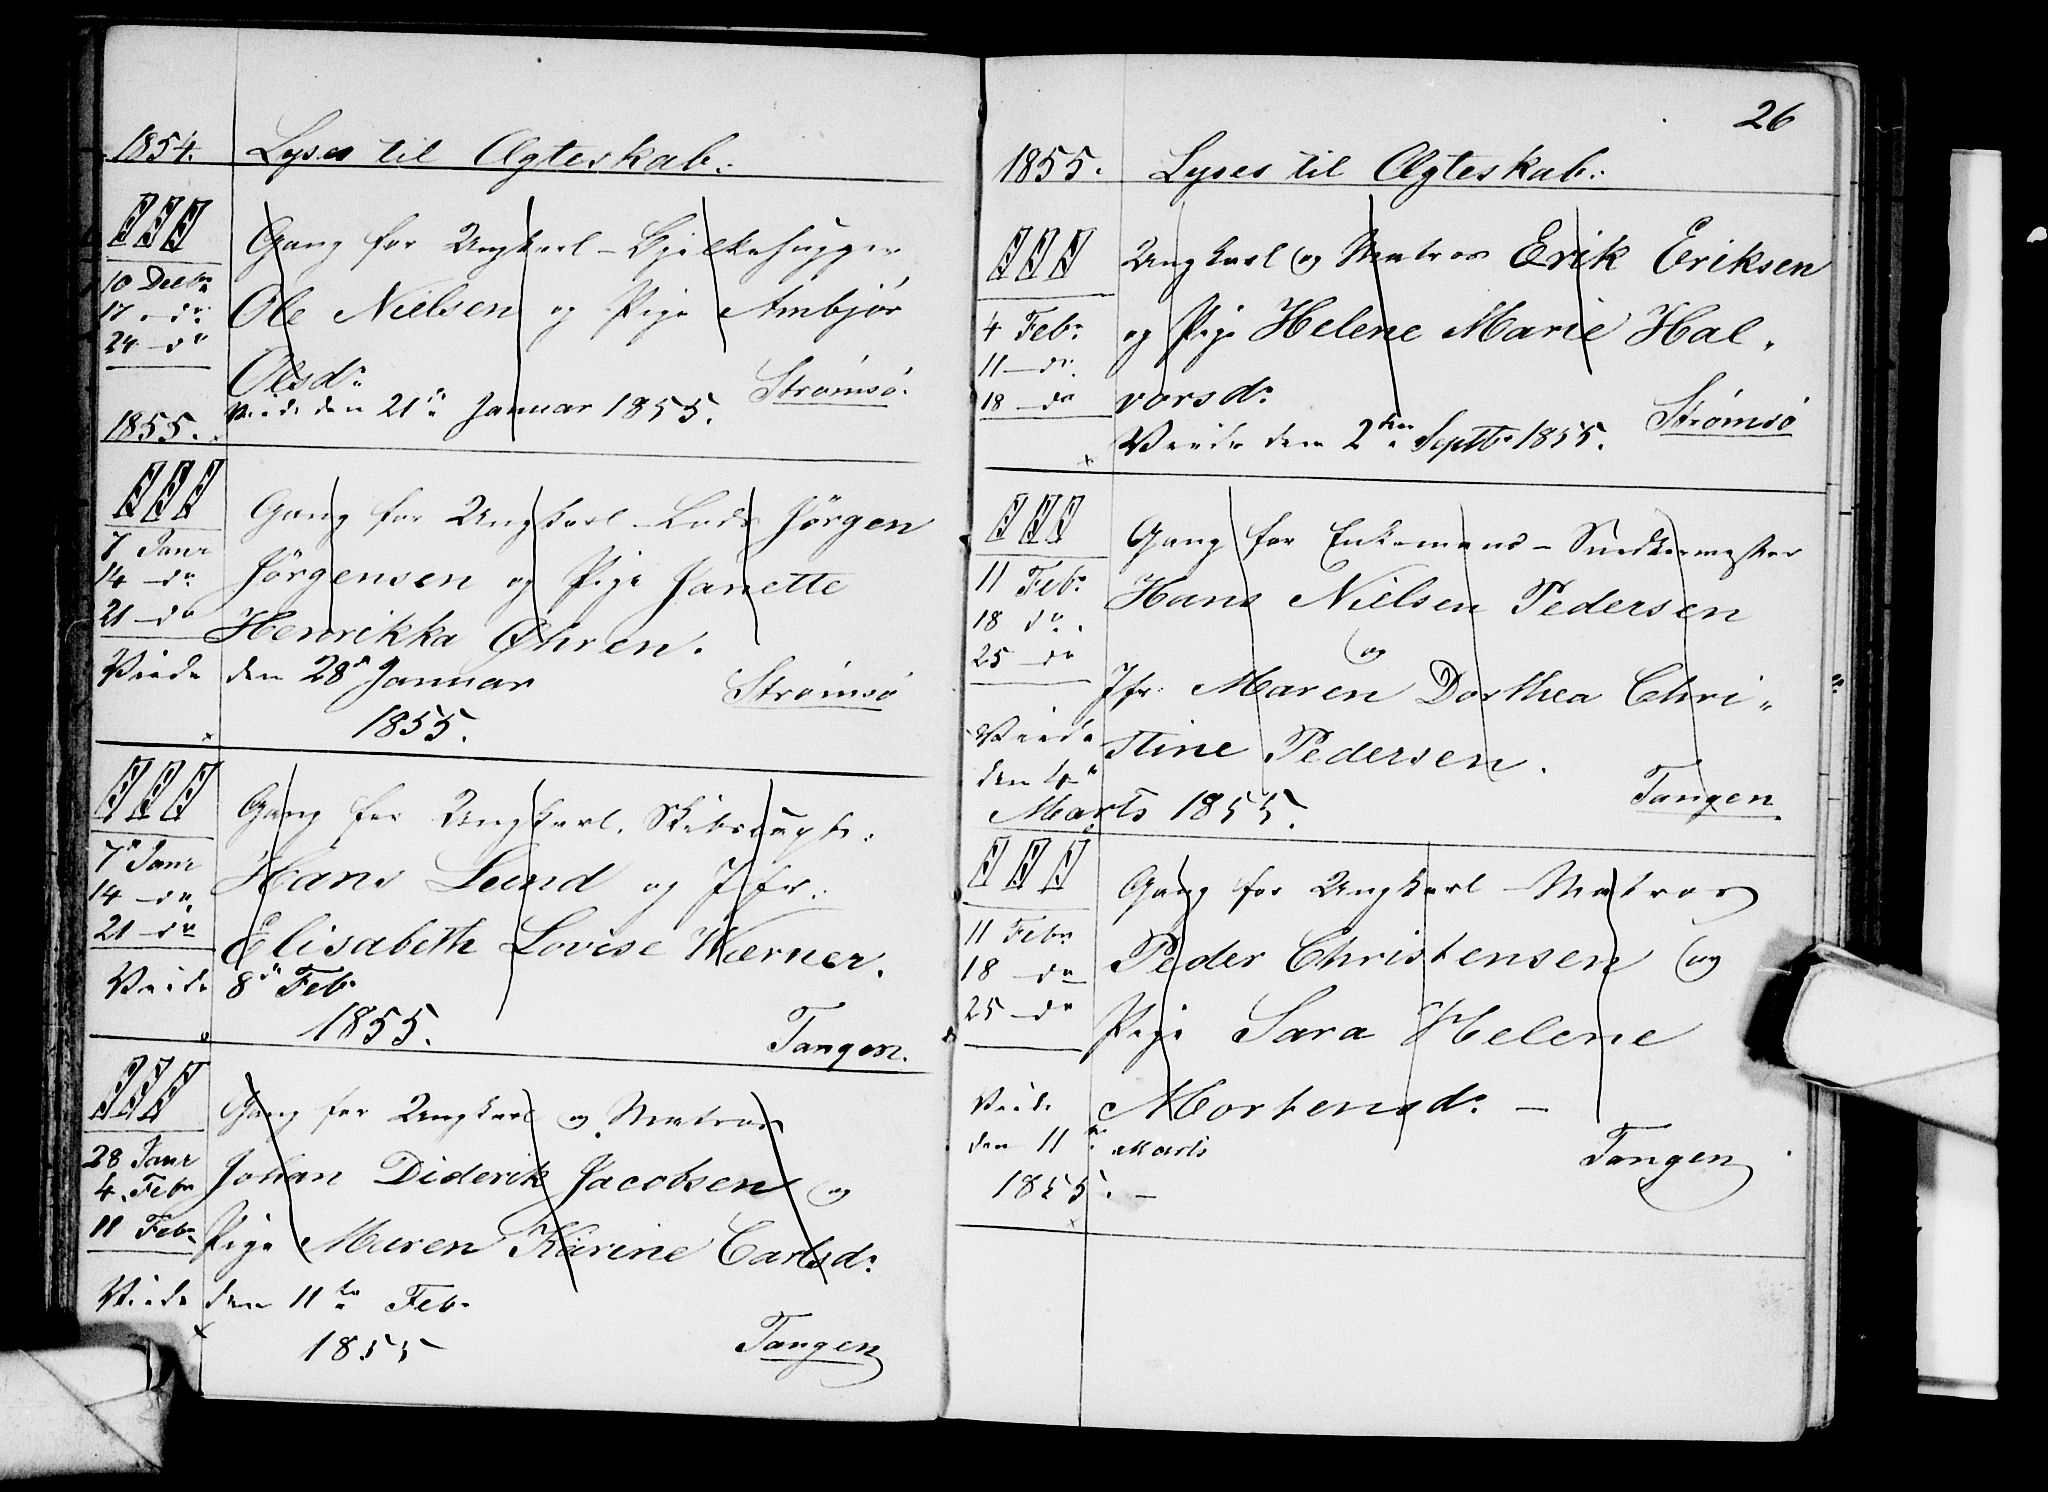 1854. Lyses til Ægteskab:
Gang for Ungkarl - Bjelkehugger
10 Decbr
17. do
24 - do
Ole Nielsen og Pige Ambjør
Olsdr
Strømsö.
Viede den 21de Januar 1855.
1855.
Gang for Ungkarl - Lods Jörgen
7 Janr
14 - do
21 - do
Jörgensen og Pige Janette
Henrikka Öhren.
Viede den 28de Januar
1855.
Strømsö
Gang for Ungkarl. Skibscapt:
7de Janr
14 - do
21 - do
Hans Lund og Jfr:
Elisabeth Lovise Wærner.
Viede 8de Feb
1855.
Tangen.
Gang for Ungkarl og Matros
28 Janr
4 Febr
11 Febr
Johan Diderik Jacobsen og
Pige Maren Karine Carlsdr
Viede den 11te Feb
1855
Tangen
26
1855. Lyses til Ægteskab:
Ungkarl og Matros Erik Eriksen
4 Febr
11 - do
18 - do
og Pige Helene Marie Hal-
vorsdr
Strømsö
Viede den 2den Septbr 1855.
Gang for Enkemand - Snedkermester
11 Febr
18 do
25 - do
Hans Nielsen Pedersen
og
Jfr: Maren Dorthea Chri-
stine Pedersen.
Viede
den 4de
Marts 1855.
Tangen
Gang for Ungkarl - Matros
11 Febr
18 - do
25 - do
Peder Christensen og
Pige Sara Helene
Mortensdr -
Viede
den 11te Marts
1855. -
Tangen